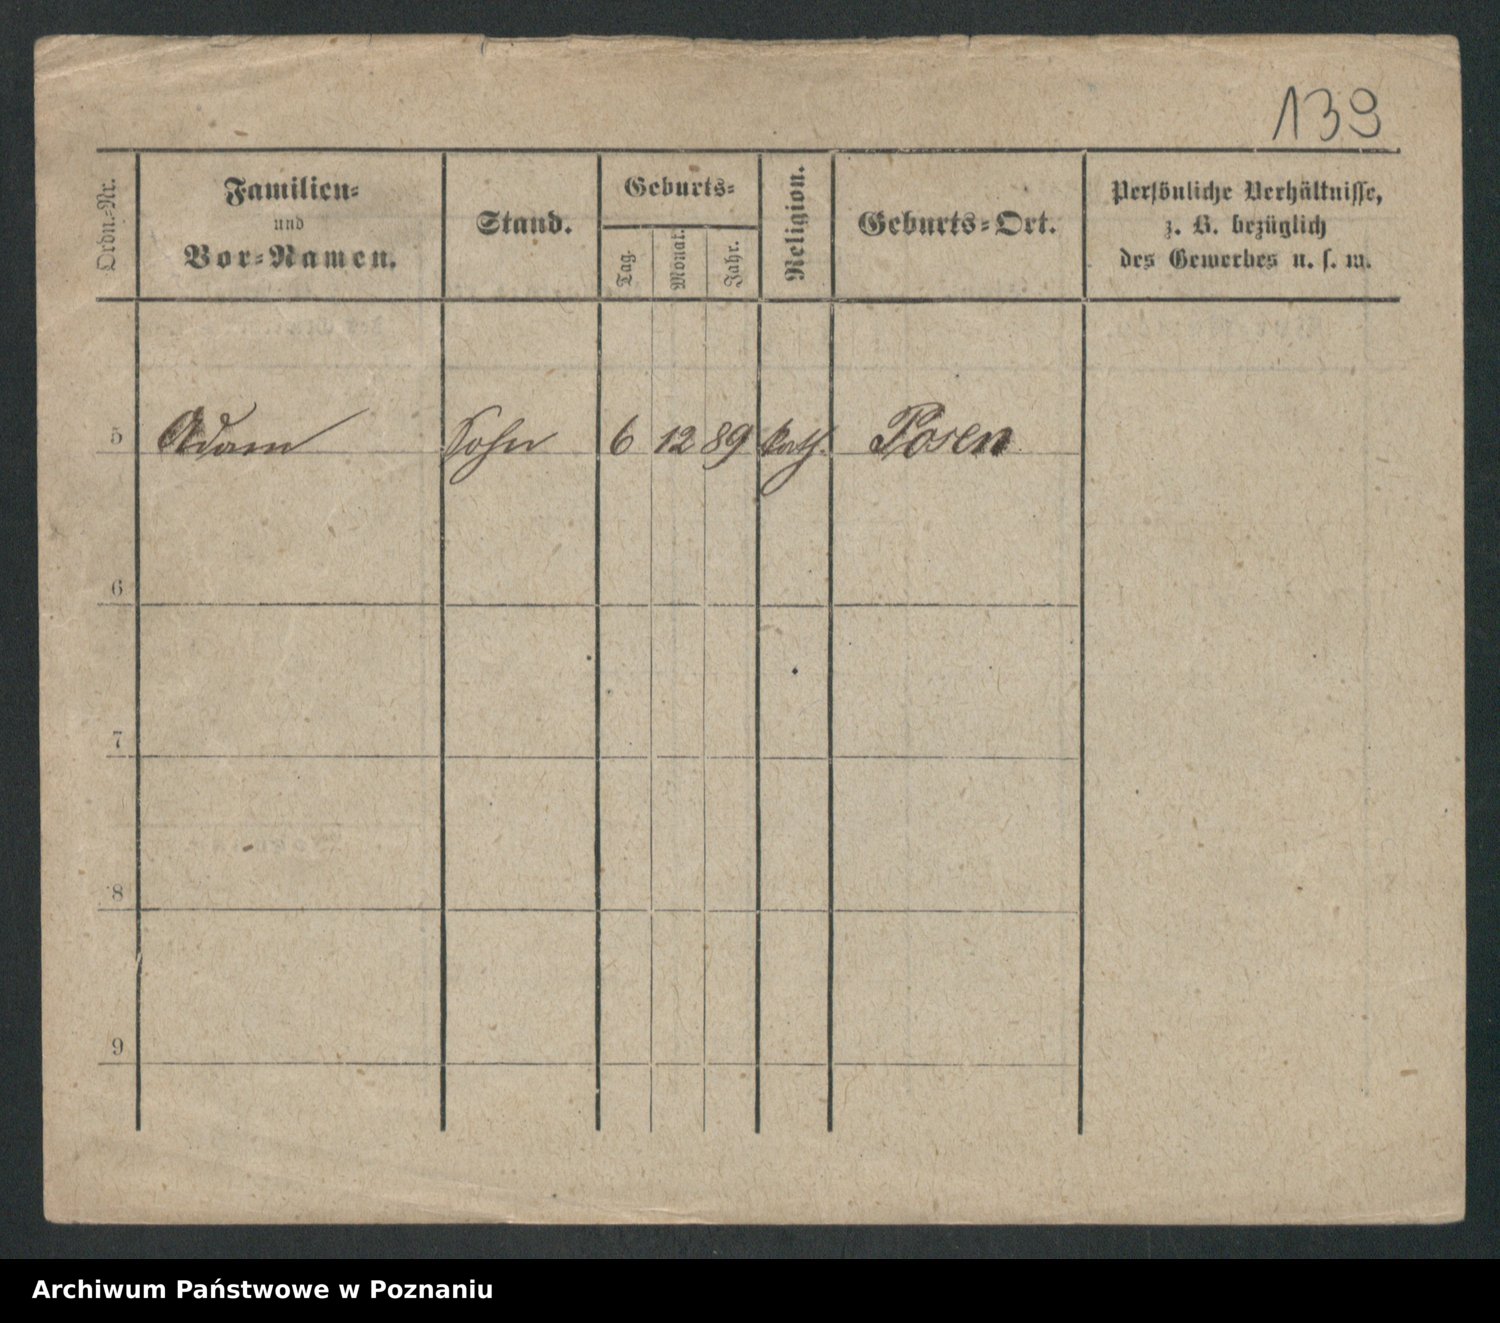 139
Ordn.-Nr.
Familien-
und
Vor-Namen.
Stand.
Geburts-
Tag.
Monat.
Jahr.
Religion.
Geburts-Ort.
Persönliche Verhältnisse,
z. B. bezüglich
des Gewerbes u. s. w.
5 Adam Sohn 6 12 89 kath. Posen
6
7
8
9
Archiwum Państwowe w Poznaniu